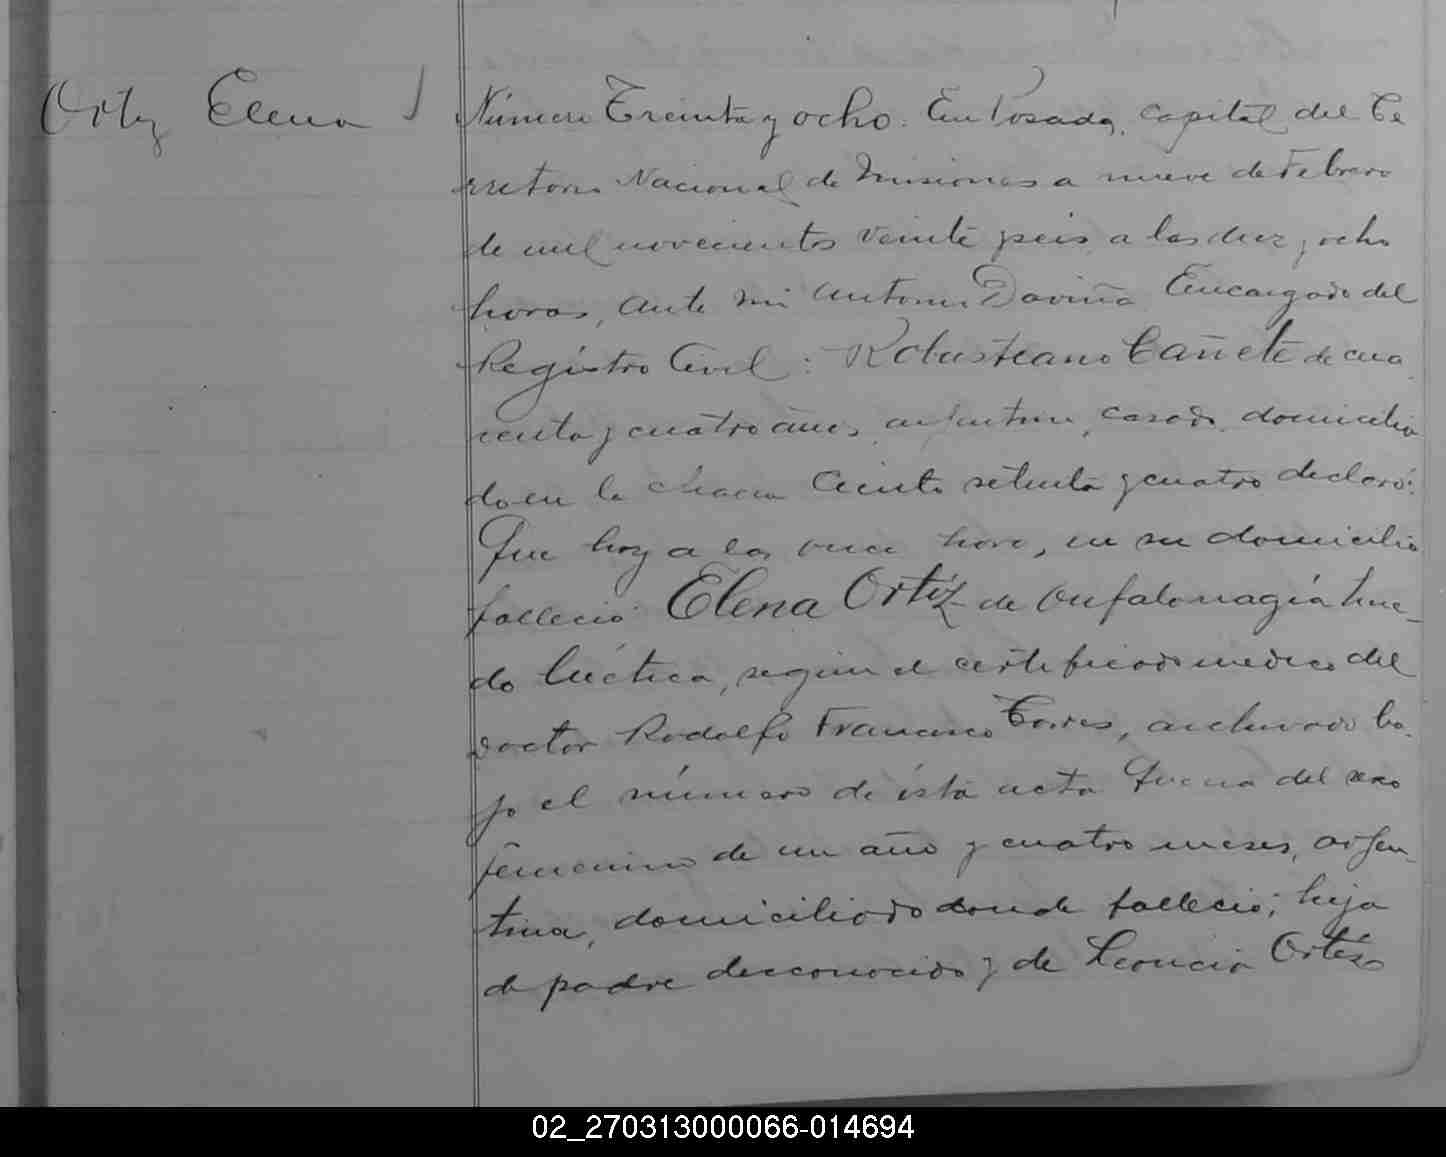 Ortiz Elena
Número Treinta y ocho. En Posadas, capital del Te
rritorio Nacional de Misiones a nueve de Febrero
de mil novecientos veinte y seis a las diez y ocho
horas, ante mi Antonio Daviña Encargado del
Registro Civil: Robustiano Cañete de cua
renta y cuatro años, argentino, casado, domicilia
do en la chacra Ciento setenta y cuatro declaró:
Que hoy a las once horas, en su domicilio
falleció Elena Ortíz de
do luética, según el certificado médico del
Doctor Rodolfo Francisco Torres, archivado ba
jo el número de ésta acta Que era del sexo
femenino de un año y cuatro meses, argen
tina, domiciliado donde falleció; hija
de padre desconocido y de Leoncia Ortíz
02_270313000066-014694